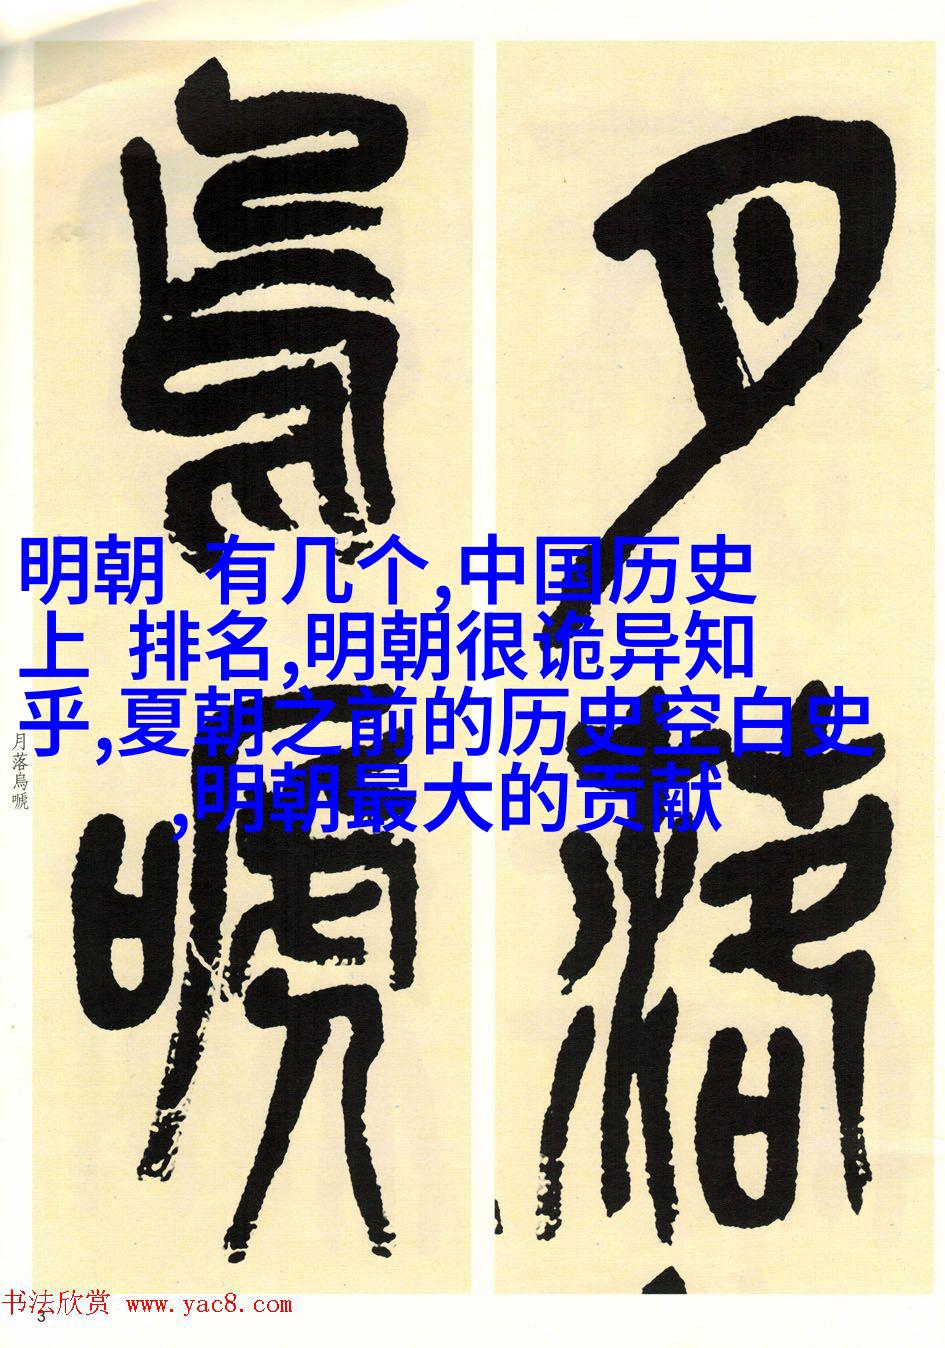 月落
烏嗁
明朝 有几个,中国历史
上 排名,明朝很诡异知
乎,夏朝之前的历史空白史
,明朝最大的贡献
月落烏嗁
书法欣赏 www.yac8.com
3